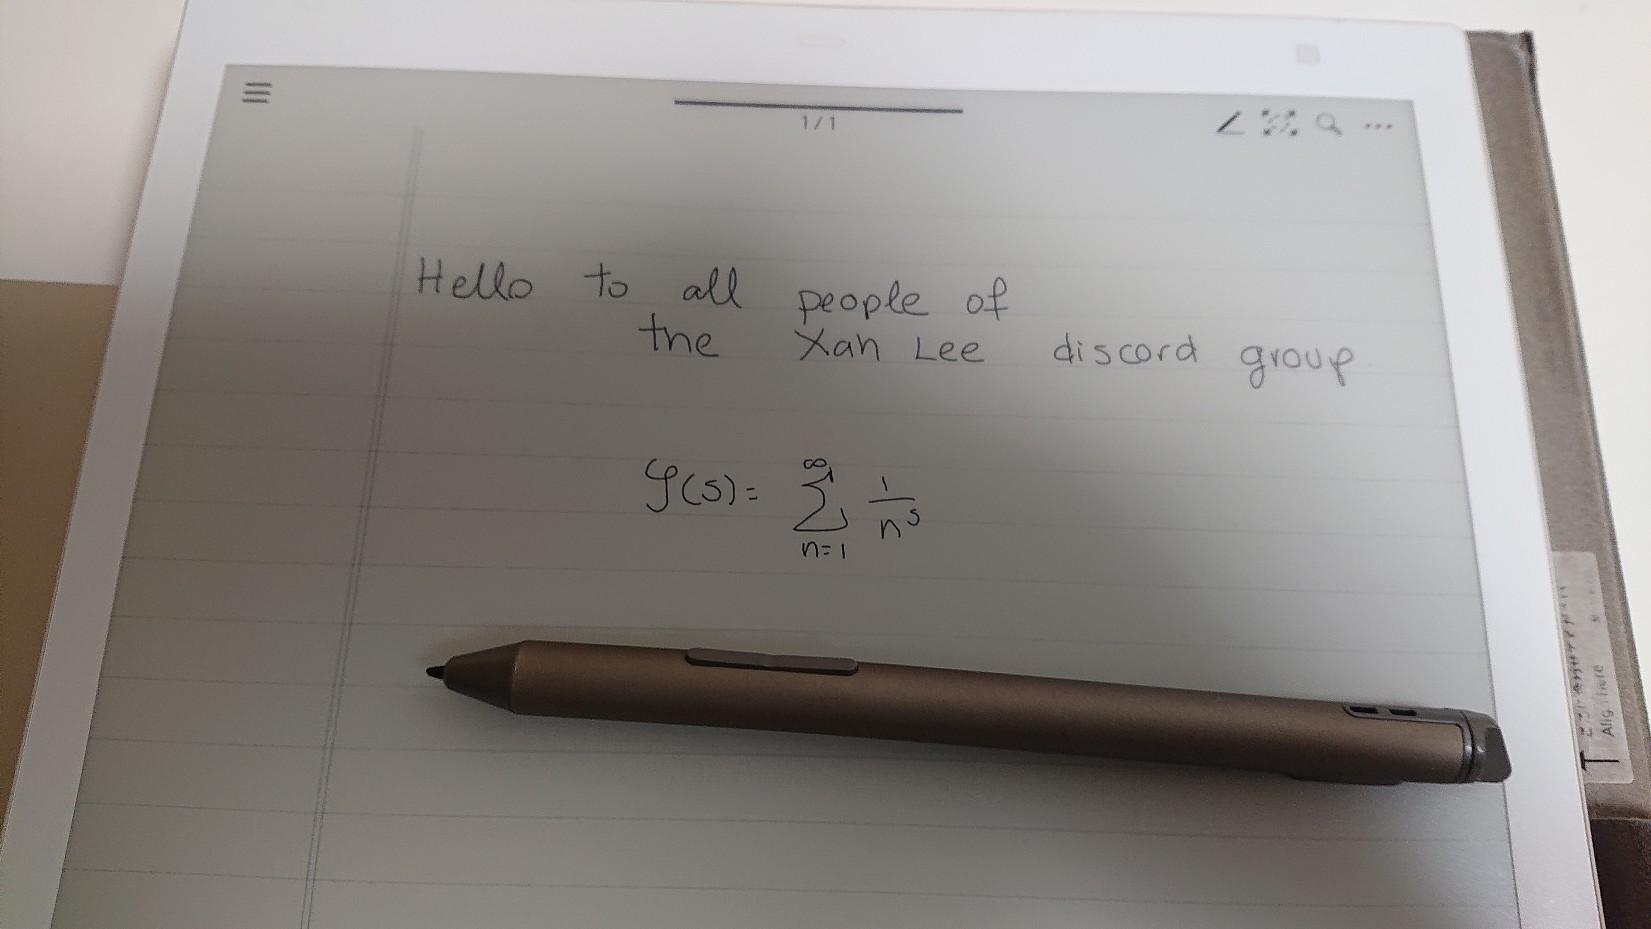 1/1
Hello to all people of
the Xah Lee discord group
ζ(s)= ∞ Σ n=1 1/n^s